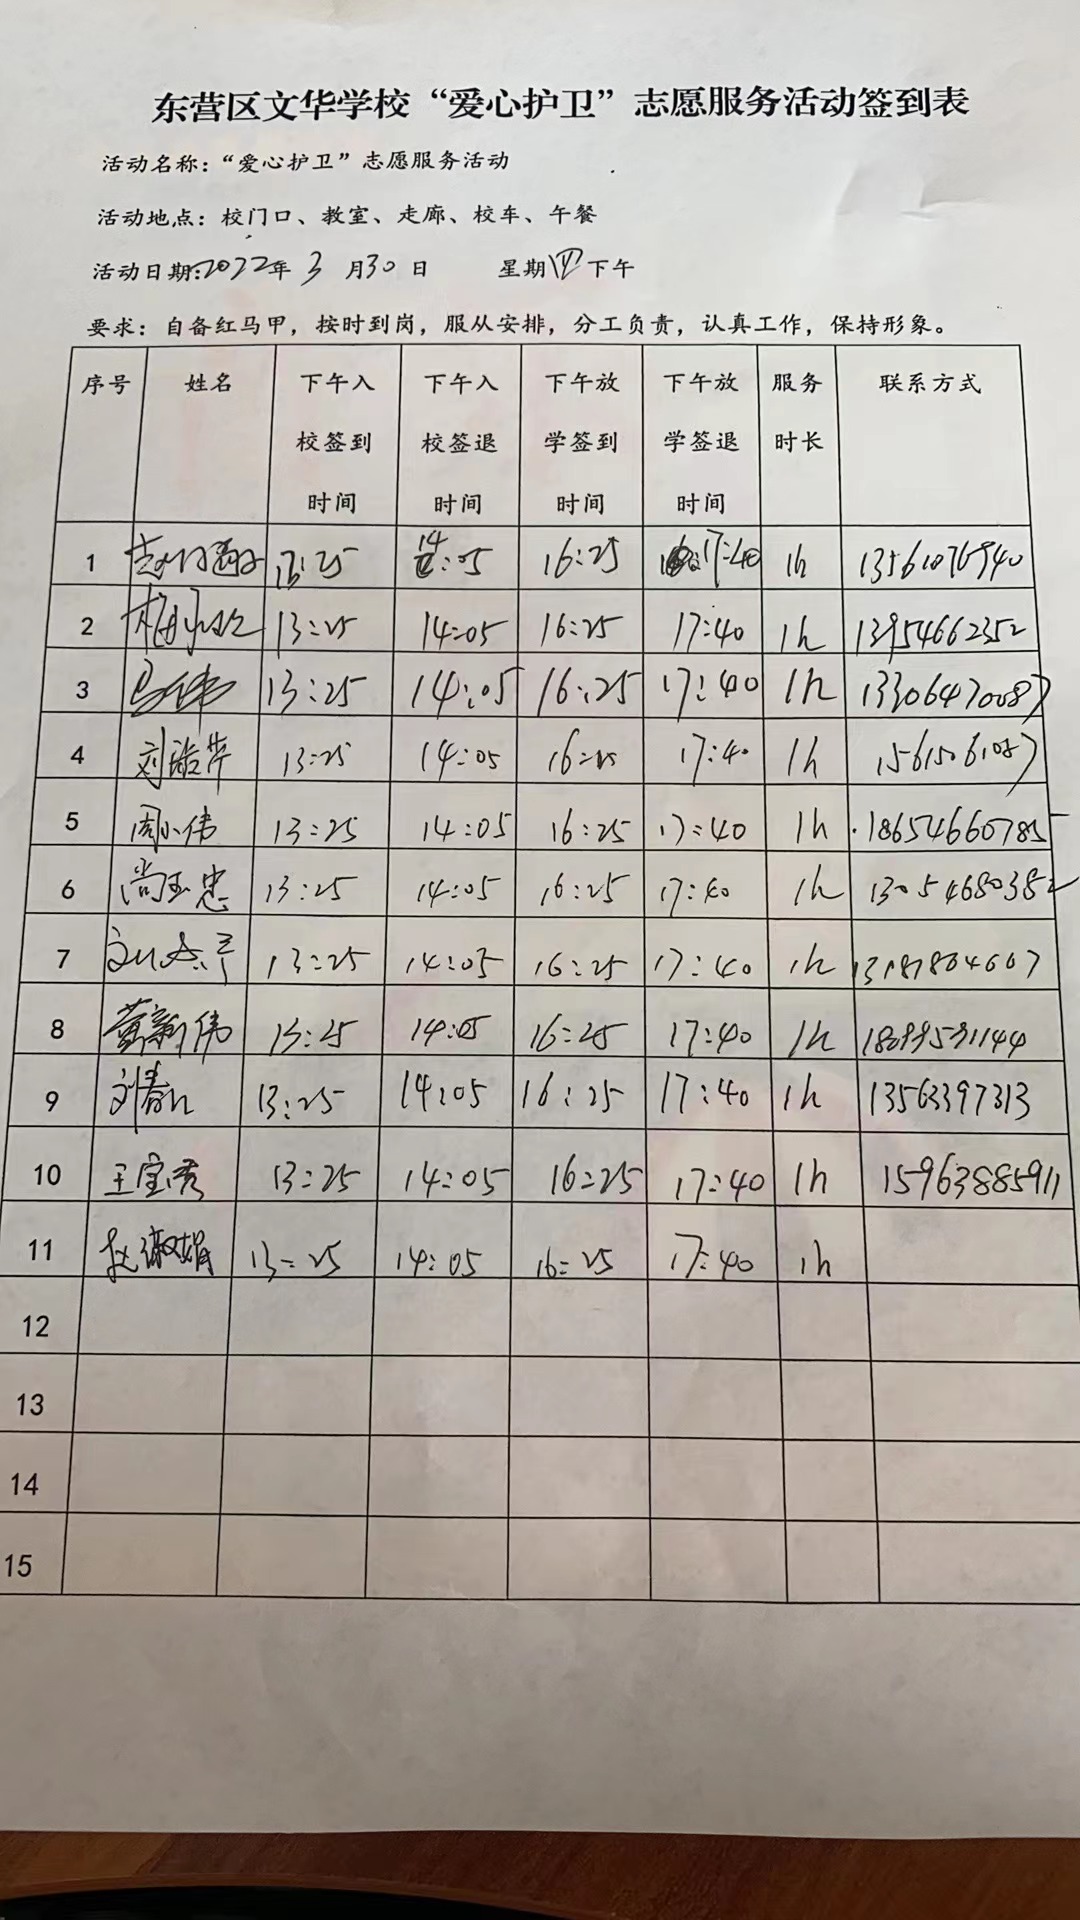 东营区文华学校“爱心护卫”志愿服务活动签到表
活动名称：“爱心护卫”志愿服务活动
活动地点：校门口、教室、走廊、校车、午餐
活动日期：2022年3月30日 星期四下午
要求：自备红马甲，按时到岗，服从安排，分工负责，认真工作，保持形象。
序号 姓名 下午入校签到时间 下午入校签退时间 下午放学签到时间 下午放学签退时间 服务时长 联系方式
1 13:25 14:05 16:25 17:40 1h 13561076940
2 13:25 14:05 16:25 17:40 1h 13954662352
3 马伟 13:25 14:05 16:25 17:40 1h 13306470087
4 刘 萍 13:25 14:05 16:25 17:40 1h
5 周小伟 13:25 14:05 16:25 17:40 1h 18654660785
6 尚玉忠 13:25 14:05 16:25 17:40 1h 13054680382
7 13:25 14:05 16:25 17:40 1h
8 黄新伟 13:25 14:05 16:25 17:40 1h
9 刘春 13:25 14:05 16:25 17:40 1h 13563397313
10 王宝秀 13:25 14:05 16:25 17:40 1h 15963885911
11 赵淑娟 13:25 14:05 16:25 17:40 1h
12
13
14
15